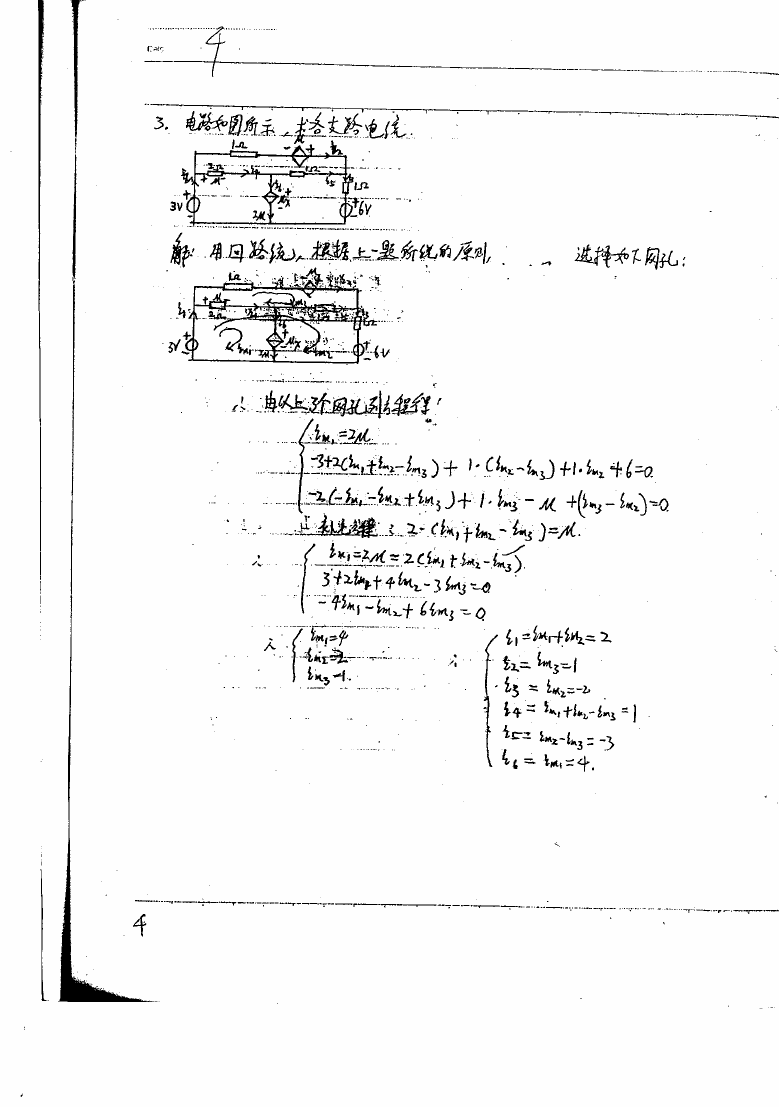 Date
4
3. 电路如图所示,求各支路电流.
1Ω - μ + i2
+ 2Ω - μ i4 1Ω i5 i3 1Ω
i1 3V i6 2μ + μx - + 6V
解: 用回路统), 根据上一题所说的原则, 选择如下网孔:
1Ω - μ + i2
i1 + μ - 2Ω im3 1Ω
3V im1 2μ μx im2 + - 6V
∴ 由以上3个网孔列方程得:
im1 = 2μ
-3+2(im1+im2-im3) + 1·(im2-im3)+1·im2+6=0
-2(-im1-im2+im3)+1·im3-μ+(im3-im2)=0
补充方程: 2·(im1+im2-im3)=μ.
∴ im1=2μ=2(im1+im2-im3).
3+2im1+4im2-3im3=0
-4im1-im2+6im3=0
∴ im1=4
im2=-2
im3=1.
∴ i1=im1+im2=2
i2=im3=1
i3=im2=-2
i4=im1+im2-im3=1
i5=im2-im3=-3
i6=im1=4.
4